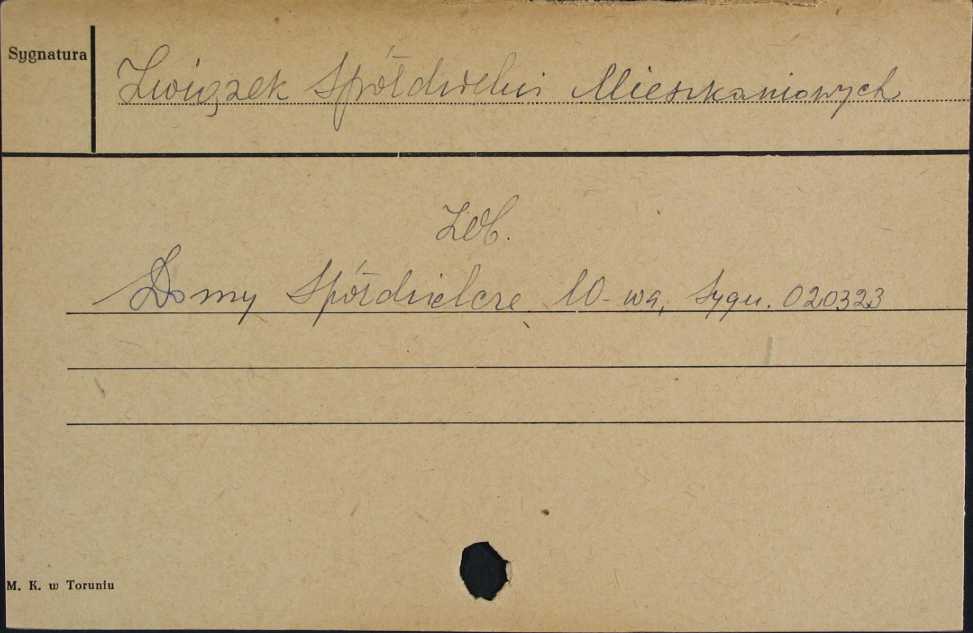 Sygnatura
Związek Spółdzielni Mieszkaniowych
Zob.
Domy Spółdzielcze W-wa, Sygn. 020323
M. K. w Toruniu